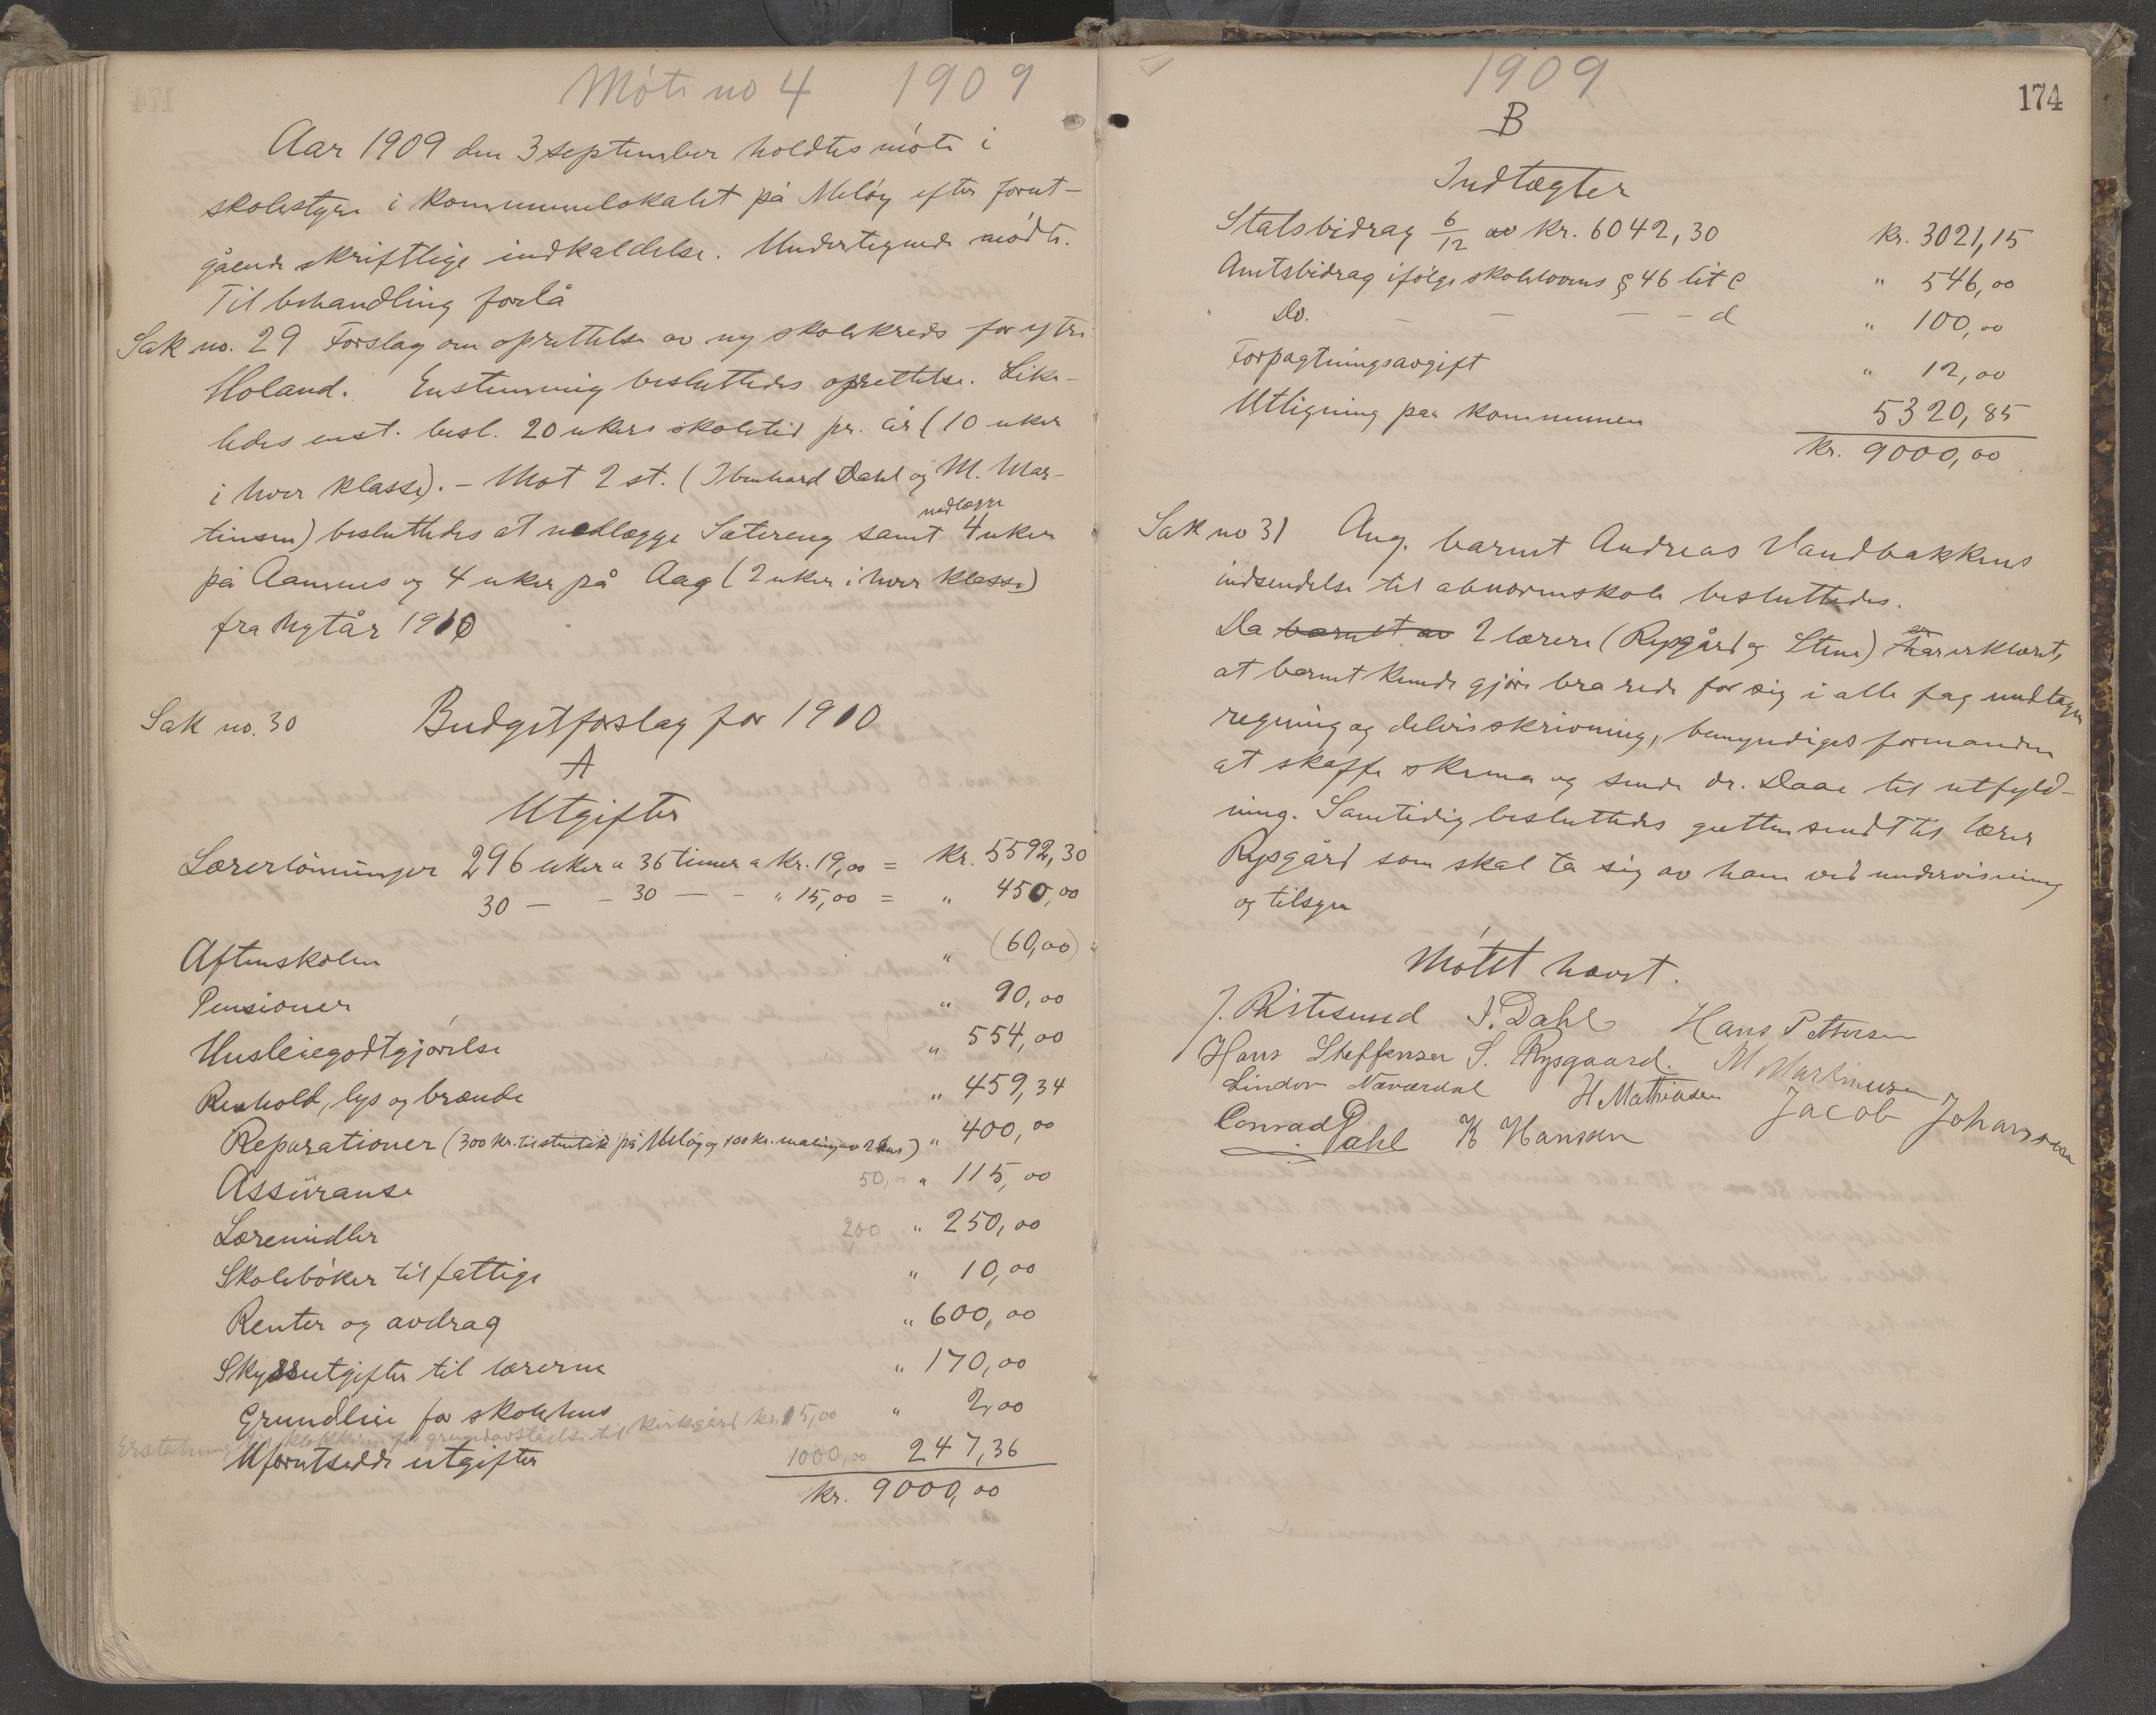 Móte no 4 1909
Aar 1909 den 3 september holdtes móte i
skolestyre i kommunelokalet på Meløy efter forut-
gående skriftlige indkaldelse. Undertegnede mødte.
Til behandling forlå
Sak no. 29 Forslag om oprettelse av ny skolekreds for ytre
Holand. Enstemmig besluttedes oprettelse. Like-
ledes enst. besl. 20 ukers skoletid pr. år (10 uker
i hver klasse). - Mot 2 st. (Ibenhard Dahl og M. Mar-
nedlægge
tinsen) besluttedes at nedlægge Satereng samt 4 uker
på Aamnes og 4 uker på Aag (2 uker i hver klasse)
fra nytår 1910
Sak no. 30 Budgetforslag for 1910
A
Utgifter
Lærerlönninger 296 uker a 36 timer a Kr. 19,00 = Kr. 5592,30
30 — - 30 — - " 15,00 = " 450,00
Aftenskolen " (60,00)
Pensioner " 90,00
Husleiegodtgjórelse " 554,00
Renhold, lys og brænde " 459,34
Reparationer (300 kr. til på Meløy og 100 kr. maling av 2 hus) " 400,00
Assüranse 50,00 " 115,00
Læremidler 200 " 250,00
Skolebóker til fattige " 10,00
Renter og avdrag " 600,00
Skyssutgifter til lærerne " 170,00
Grundleie for skolehus " 2,00
Erstatning til klokkeren for grundavståelse til kirkegård kr. 15,00
Uforutsedde utgifter 1000,00 247,36
Kr. 9000,00
1909
174
B
Indtægter
Statsbidrag 6/12 av Kr. 6042,30 Kr. 3021,15
Amtsbidrag ifólge skolelovens § 46 lit c " 546,00
Do. — — — - d " 100,00
Forpagtningsavgift " 12,00
Utligning paa kommunen 5320,85
Kr. 9000,00
Sak no 31 Ang. barnet Andreas Vandbakkens
indsendelse til abnormskole besluttedes.
Da barnet av 2 lærere (Rysgård og Stene) er har erklært,
at barnet kunde gjøre bra rede for sig i alle fag undtagen
regning og delvis skrivning, bemyndiges formanden
at skaffe skema og sende dr. Daae til utfyld-
ning. Samtidig besluttedes gutten sendt til lærer
Rysgård som skal ta sig av ham ved undervisning
og tilsyn
Mótet hævet.
J. Ristesund I. Dahl Hans Pettersen
Hans Steffensen S. Rysgaard. M Martinusen
Lindor Næverdal H Mathiasen Jacob Johanssen
Conrad Dahl K Hanssen